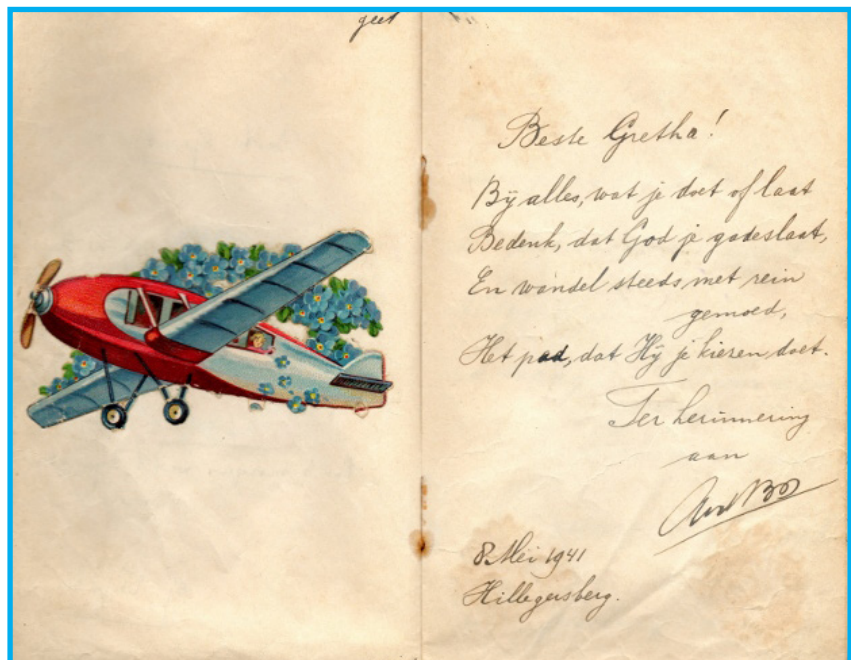 geet
Beste Gretha!
Bij alles, wat je doet of laat
Bedenk, dat God je gadeslaat,
En wandel steeds met rein
gemoed,
Het pad, dat Hij je kiezen doet.
Ter herinnering
aan
Bos
8 Mei 1941
Hillegersberg.